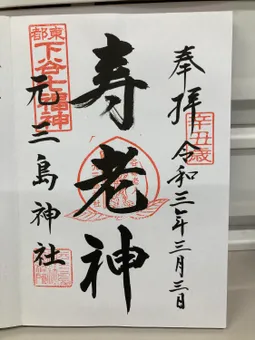 奉拝 令和三年三月三日
辛丑歳
寿老神
東都
下谷七福神
元三島神社